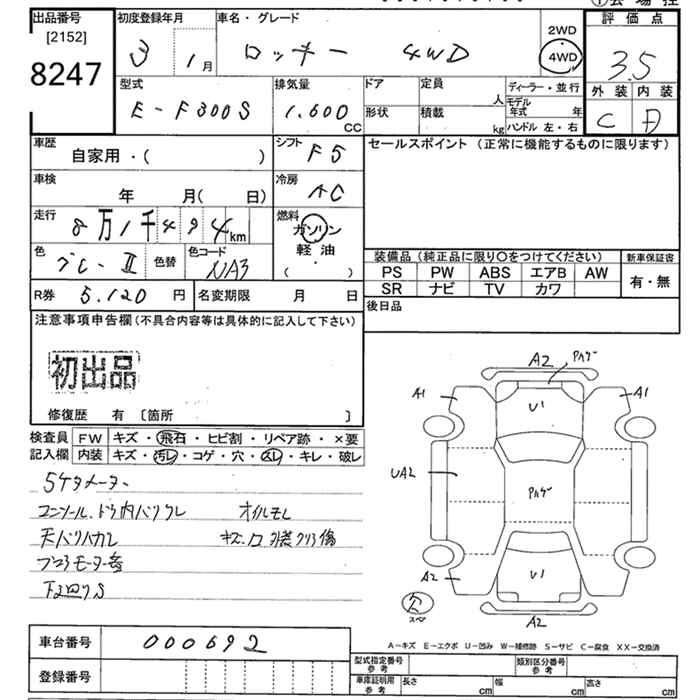 出品番号
[2152]
8247
初度登録年月
3 1月
車名・グレード
ロッキー 4WD
2WD
4WD
評価点
3.5
外装 内装
C D
型式
E-F300S
排気量
1.600
CC
ドア
定員
人
形状
積載
kg
ディーラー・並行
モデル
年式 年
ハンドル 左・右
車歴
自家用・( )
シフト
F5
セールスポイント (正常に機能するものに限ります)
車検
年 月( 日)
冷房
AC
走行
8万1千494km
燃料
ガソリン
・
軽油
( ・ )
色
色替
色コード
NA3
装備品 (純正品に限り〇をつけてください)
新車保証書
PS PW ABS エアB AW
SR ナビ TV カワ
有・無
R券 5.120 円
名変期限 月 日
後日品
注意事項申告欄 (不具合内容等は具体的に記入して下さい)
初出品
修復歴 有 〔箇所 〕
検査員
記入欄
FW キズ・飛石・ヒビ割・リペア跡・×要
内装 キズ・汚レ・コゲ・穴・スレ・キレ・破レ
5ケタメーター
オイルモレ
下回りS
A2
A1 A1
U1
UA2
U1
A2
A2
車台番号 000692
登録番号
A-キズ E-エクボ U-凹み W-補修跡 S-サビ C-腐食 XX-交換済
型式指定番号
参考
類別区分番号
参考
車庫証明用
参考
長さ cm 幅 cm 高さ cm